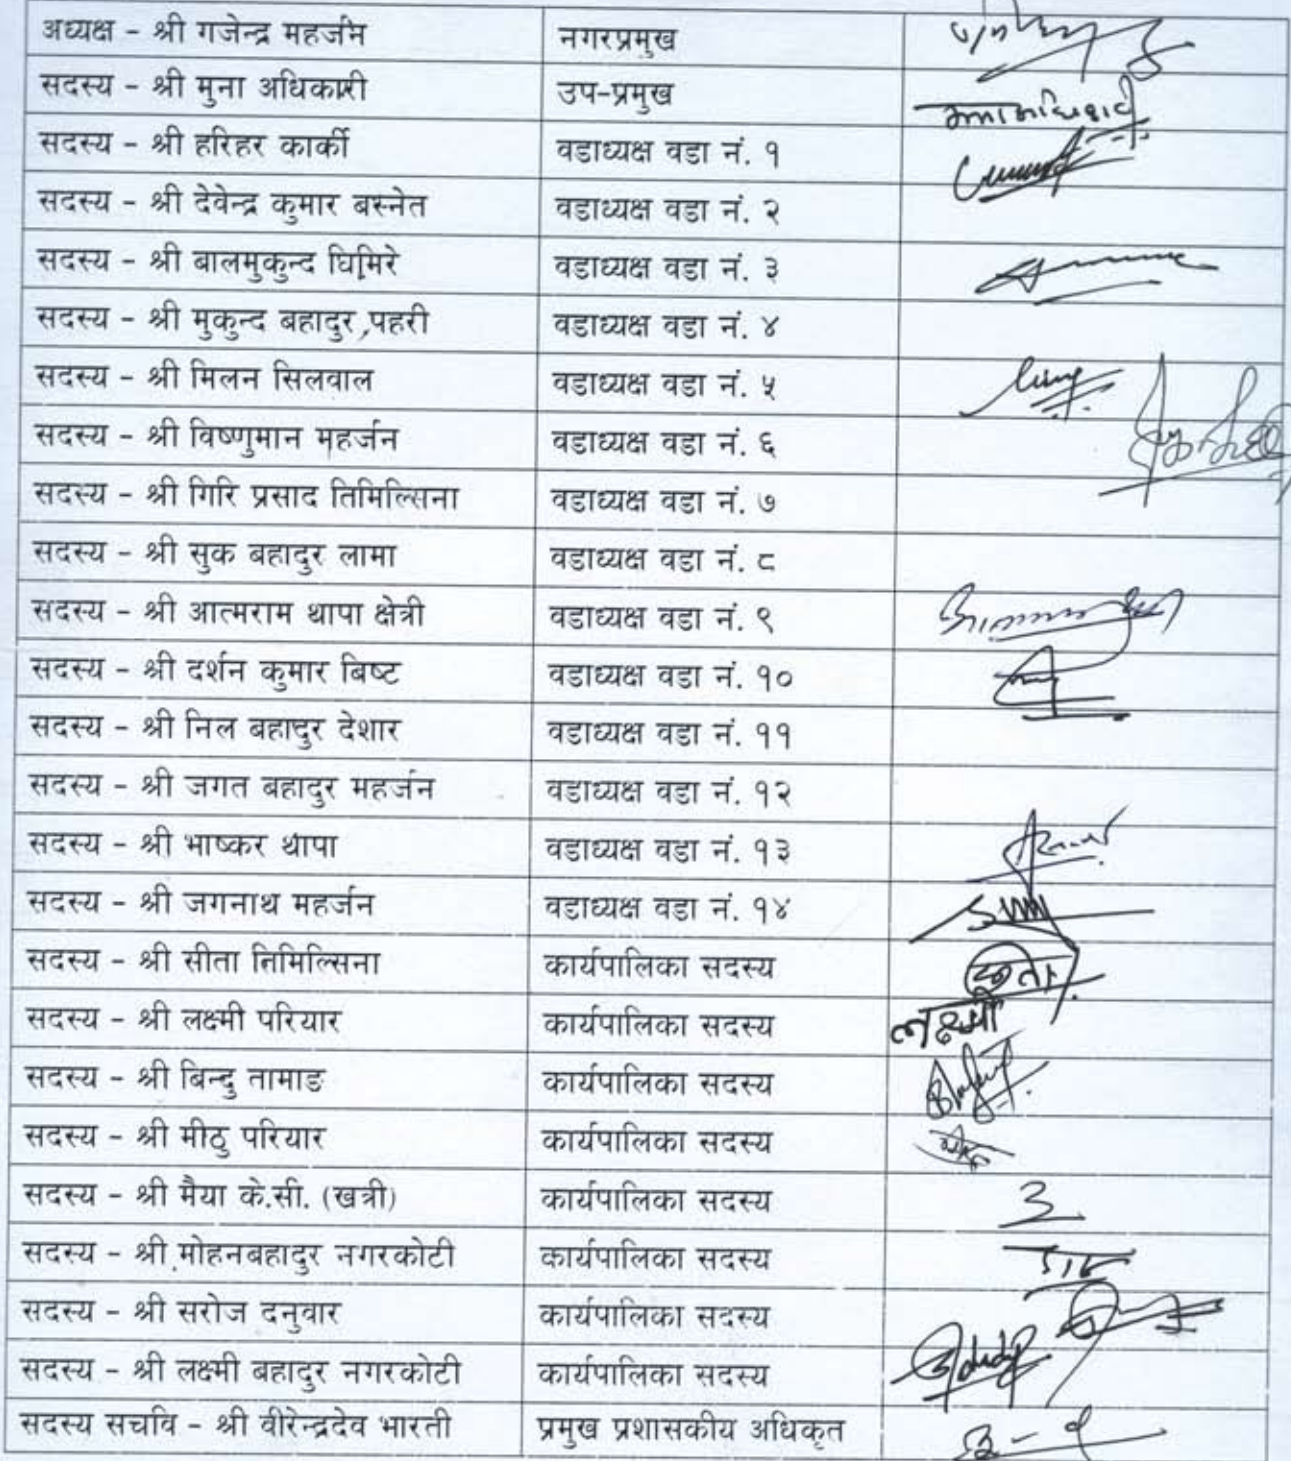 अध्यक्ष - श्री गजेन्द्र महर्जन नगरप्रमुख
सदस्य - श्री मुना अधिकारी उप-प्रमुख
सदस्य - श्री हरिहर कार्की वडाध्यक्ष वडा नं. १
सदस्य - श्री देवेन्द्र कुमार बस्नेत वडाध्यक्ष वडा नं. २
सदस्य - श्री बालमुकुन्द घिमिरे वडाध्यक्ष वडा नं. ३
सदस्य - श्री मुकुन्द बहादुर पहरी वडाध्यक्ष वडा नं. ४
सदस्य - श्री मिलन सिलवाल वडाध्यक्ष वडा नं. ५
सदस्य - श्री विष्णुमान महर्जन वडाध्यक्ष वडा नं. ६
सदस्य - श्री गिरि प्रसाद तिमिल्सिना वडाध्यक्ष वडा नं. ७
सदस्य - श्री सुक बहादुर लामा वडाध्यक्ष वडा नं. ८
सदस्य - श्री आत्मराम थापा क्षेत्री वडाध्यक्ष वडा नं. ९
सदस्य - श्री दर्शन कुमार बिष्ट वडाध्यक्ष वडा नं. १०
सदस्य - श्री निल बहादुर देशार वडाध्यक्ष वडा नं. ११
सदस्य - श्री जगत बहादुर महर्जन वडाध्यक्ष वडा नं. १२
सदस्य - श्री भाष्कर थापा वडाध्यक्ष वडा नं. १३
सदस्य - श्री जगनाथ महर्जन वडाध्यक्ष वडा नं. १४
सदस्य - श्री सीता तिमिल्सिना कार्यपालिका सदस्य
सदस्य - श्री लक्ष्मी परियार कार्यपालिका सदस्य लक्ष्मी
सदस्य - श्री बिन्दु तामाङ कार्यपालिका सदस्य
सदस्य - श्री मीठु परियार कार्यपालिका सदस्य
सदस्य - श्री मैया के.सी. (खत्री) कार्यपालिका सदस्य
सदस्य - श्री मोहनबहादुर नगरकोटी कार्यपालिका सदस्य
सदस्य - श्री सरोज दनुवार कार्यपालिका सदस्य
सदस्य - श्री लक्ष्मी बहादुर नगरकोटी कार्यपालिका सदस्य
सदस्य सचवि - श्री वीरेन्द्रदेव भारती प्रमुख प्रशासकीय अधिकृत